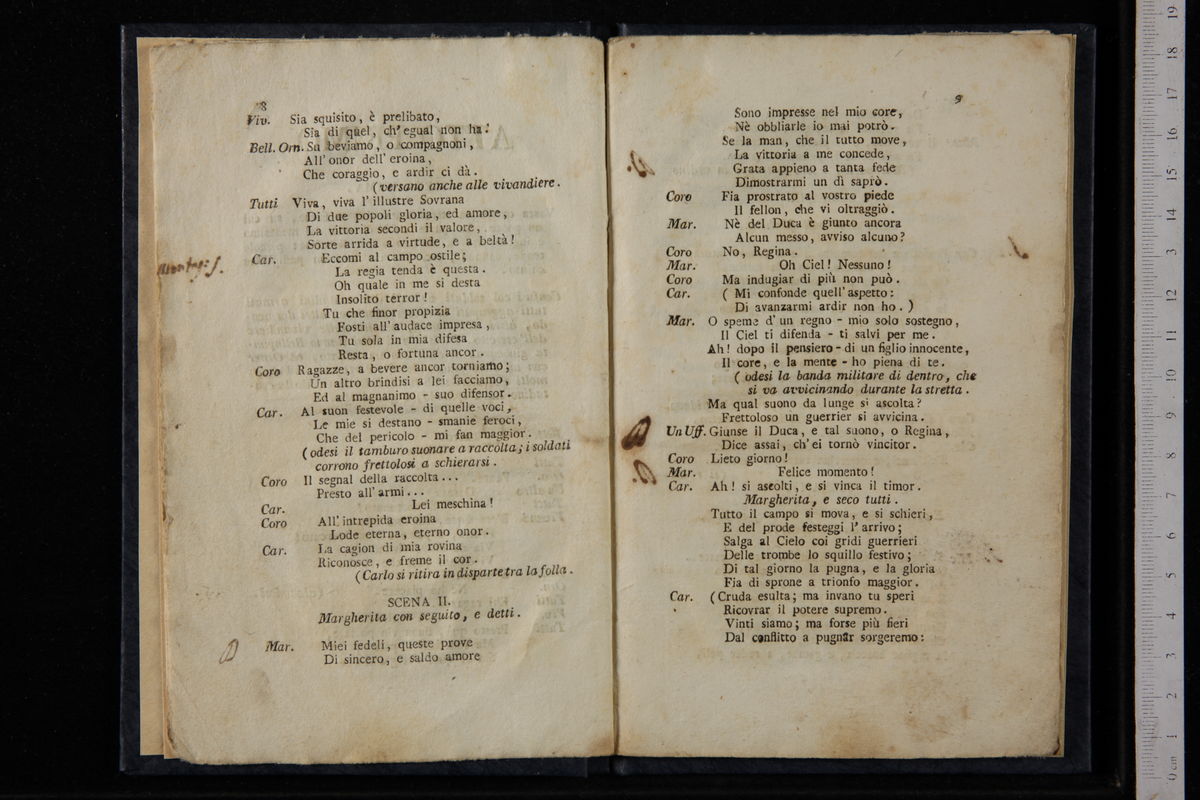 8
Viv. Sia squisito, è prelibato,
Sia di quel, ch'egual non ha.
Bell. Om. Su beviamo, o compagnoni,
All'onor dell'eroina,
Che coraggio, e ardir ci dà.
(versano anche alle vivandiere.
Tutti Viva, viva l'illustre Sovrana
Di due popoli gloria, ed amore,
La vittoria secondi il valore,
Sorte arrida a virtude, e a beltà!
Car. Eccomi al campo ostile;
La regia tenda è questa.
Oh quale in me si desta
Insolito terror!
Tu che finor propizia
Fosti all'audace impresa,
Tu sola in mia difesa
Resta, o fortuna ancor.
Coro Ragazze, a bevere ancor torniamo;
Un altro brindisi a lei facciamo,
Ed al magnanimo - suo difensor.
Car. Al suon festevole - di quelle voci,
Le mie si destano - smanie feroci,
Che del pericolo - mi fan maggior.
(odesi il tamburo suonare a raccolta; i soldati
corrono frettolosi a schierarsi.
Coro Il segnal della raccolta...
Presto all'armi...
Car. Lei meschina!
Coro All'intrepida eroina
Lode eterna, eterno onor.
Car. La cagion di mia rovina
Riconosce, e freme il cor.
(Carlo si ritira in disparte tra la folla.
SCENA II.
Margherita con seguito, e detti.
Mar. Miei fedeli, queste prove
Di sincero, e saldo amore
9
Sono impresse nel mio core,
Nè obbliarle io mai potrò.
Se la man, che il tutto move,
La vittoria a me concede,
Grata appieno a tanta fede
Dimostrarmi un dì saprò.
Coro Fia prostrato al vostro piede
Il fellon, che vi oltraggiò.
Mar. Nè del Duca è giunto ancora
Alcun messo, avviso alcuno?
Coro No, Regina.
Mar. Oh Ciel! Nessuno!
Coro Ma indugiar di più non può.
Car. (Mi confonde quell'aspetto:
Di avanzarmi ardir non ho.)
Mar. O speme d'un regno - mio solo sostegno,
Il Ciel ti difenda - ti salvi per me.
Ah! dopo il pensiero - di un figlio innocente,
Il core, e la mente - ho piena di te.
(odesi la banda militare di dentro, che
si va avvicinando durante la stretta.
Ma qual suono da lunge si ascolta?
Frettoloso un guerrier si avvicina.
Un Uff. Giunse il Duca, e tal suono, o Regina,
Dice assai, ch'ei tornò vincitor.
Coro Lieto giorno!
Mar. Felice momento!
Car. Ah! si ascolti, e si vinca il timor.
Margherita, e seco tutti.
Tutto il campo si mova, e si schieri,
E del prode festeggi l'arrivo;
Salga al Cielo coi gridi guerrieri
Delle trombe lo squillo festivo;
Di tal giorno la pugna, e la gloria
Fia di sprone a trionfo maggior.
Car. (Cruda esulta; ma invano tu speri
Ricovrar il potere supremo.
Vinti siamo; ma forse più fieri
Dal conflitto a pugnar sorgeremo:
0 cm 1 2 3 4 5 6 7 8 9 10 11 12 13 14 15 16 17 18 19